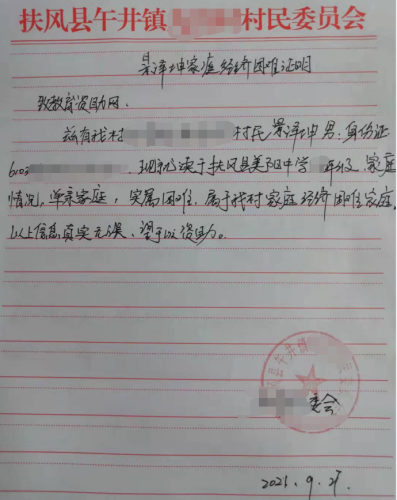 扶风县午井镇 村民委员会
景泽坤家庭经济困难证明
致教育资助网:
兹有我村 村民景泽坤 男,身份证
现就读于扶风县美阳中学 年级,家庭
情况,单亲家庭,实属困难,属于我村家庭经济困难家庭,
以上信息真实无误,望予以资助。
县午井镇
委会
2021.9.27